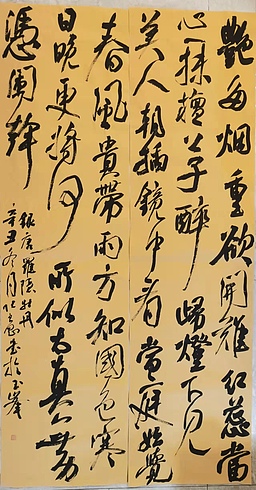 艷多烟重欲開難紅蕊當
心一抹檀公子醉歸燈下見
美人朝插鏡中看當庭始覺
春風貴帶雨方知國色寒
日晚更將何所似太真無力
憑闌幹
錄唐羅隱牡丹
辛丑九月書於玉峯